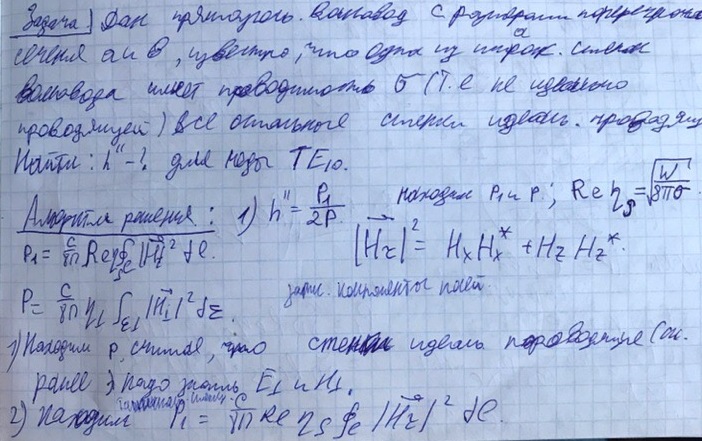 Задача) Дан прямоуголь. волновод с размерами поперечного
сечения a и b, известно, что одна из широк. стенок
волновода имеет проводимость σ (т.е не идеально
проводящей) все остальные стенки идеальн. проводящ
Найти: h'' - ? для моды TE₁₀.
Алгоритм решения: 1) h'' = P₁/2P находим P₁ и P.; Re η_s = √(W/8πσ)
P₁ = c/8π Re η_s ∮_c |H_τ|² dl. |H_τ|² = H_x H_x* + H_z H_z*.
P = c/8π η_⊥ ∫_Σ⊥ |H_⊥|² dΣ. компоненты полей.
1) Находим P, считая, что стенки идеальн проводящие (см.
ранее) надо знать E_⊥ и H_⊥.
2) Находим P₁ = c/8π Re η_s ∮_c |H_τ|² dl.